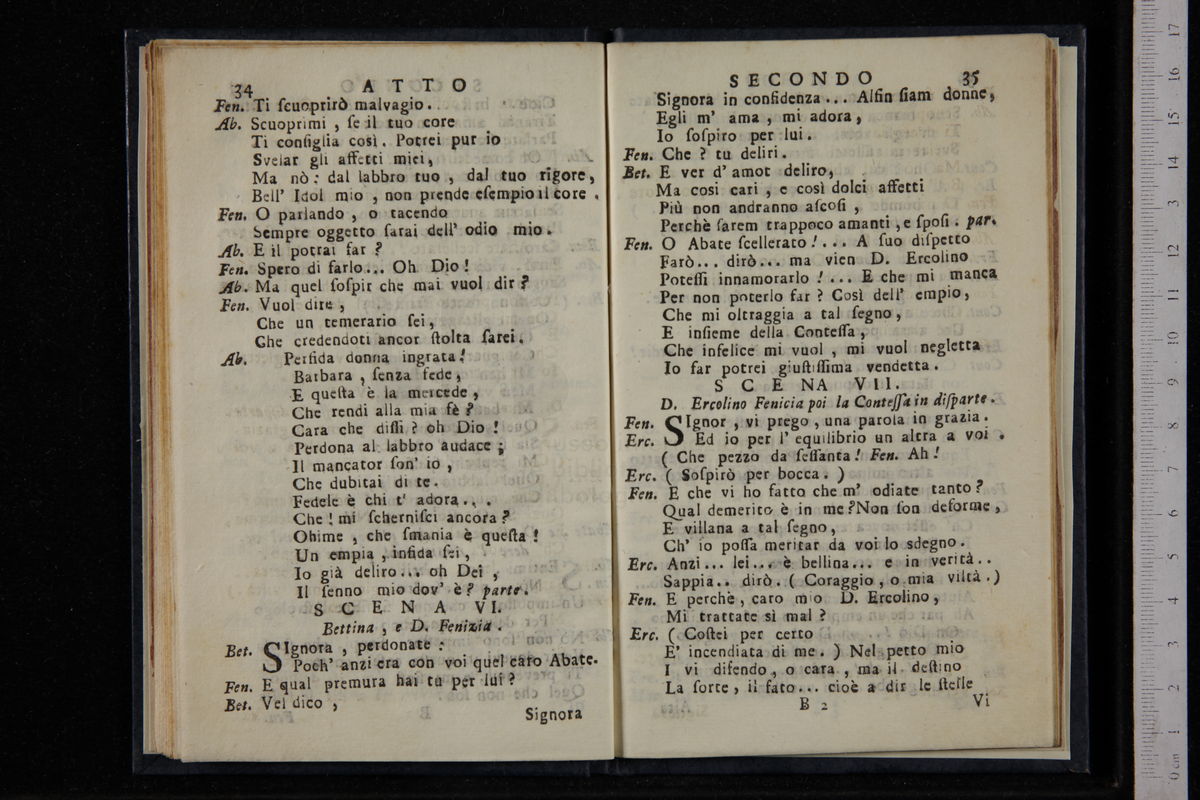 34 ATTO
Fen. Ti ſcuoprirò malvagio.
Ab. Scuoprimi , ſe il tuo core
Ti conſiglia così. Potrei pur io
Svelar gli affetti miei,
Ma nò: dal labbro tuo , dal tuo rigore,
Bell' Idol mio , non prende eſempio il core .
Fen. O parlando , o tacendo
Sempre oggetto ſarai dell' odio mio.
Ab. E il potrai far ?
Fen. Spero di farlo... Oh Dio !
Ab. Ma quel ſoſpir che mai vuol dir ?
Fen. Vuol dire ,
Che un temerario ſei,
Che credendoti ancor ſtolta ſarei.
Ab. Perfida donna ingrata!
Barbara , ſenza fede,
E queſta è la mercede ,
Che rendi alla mia fè ?
Cara che diſſi ? oh Dio !
Perdona al labbro audace ;
Il mancator ſon' io ,
Che dubitai di te.
Fedele è chi t' adora...
Che ! mi ſcherniſci ancora ?
Ohime , che ſmania è queſta !
Un empia , infida ſei,
Io già deliro... oh Dei ,
Il ſenno mio dov' è ? parte.
SCENA VI.
Bettina , e D. Fenizia .
Bet. SIgnora , perdonate :
Poch' anzi era con voi quel caro Abate.
Fen. E qual premura hai tu per lui ?
Bet. Vel dico ,
Signora
SECONDO 35
Signora in confidenza... Alfin ſiam donne,
Egli m' ama , mi adora,
Io ſoſpiro per lui.
Fen. Che ? tu deliri.
Bet. E ver d' amor deliro,
Ma cosi cari , e così dolci affetti
Più non andranno aſcoſi ,
Perchè ſarem trappoco amanti , e ſpoſi . par.
Fen. O Abate ſcellerato !... A ſuo diſpetto
Farò... dirò... ma vien D. Ercolino
Poteſſi innamorarlo !... E che mi manca
Per non poterlo far ? Così dell' empio,
Che mi oltraggia a tal ſegno,
E inſieme della Conteſſa,
Che infelice mi vuol , mi vuol negletta
Io far potrei giuſtiſſima vendetta.
SCENA VII.
D. Ercolino Fenicia poi la Conteſſa in diſparte.
Fen. SIgnor , vi prego , una parola in grazia.
Erc. Ed io per l' equilibrio un altra a voi .
( Che pezzo da ſeſſanta ! Fen. Ah !
Erc. ( Soſpirò per bocca. )
Fen. E che vi ho fatto che m' odiate tanto ?
Qual demerito è in me ? Non ſon deforme,
E villana a tal ſegno,
Ch' io poſſa meritar da voi lo sdegno.
Erc. Anzi... lei... è bellina... e in verità..
Sappia.. dirò. ( Coraggio , o mia viltà.)
Fen. E perchè , caro mio D. Ercolino,
Mi trattate sì mal ?
Erc. ( Coſtei per certo
E' incendiata di me. ) Nel petto mio
I vi difendo , o cara , ma il deſtino
La ſorte, il fato... cioè a dir le ſtelle
B 2 Vi